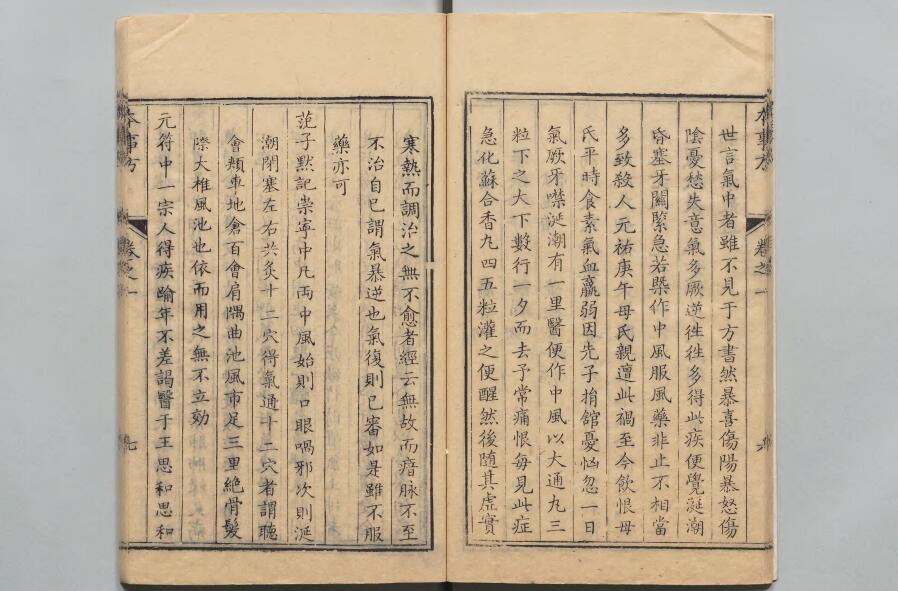 本事方
卷之一
世言氣中者雖不見于方書然暴喜傷陽暴怒傷
陰憂愁失意氣多厥逆徃徃多得此疾便覺涎潮
昏塞牙關緊急若槩作中風服風藥非止不相當
多致殺人元祐庚午母氏親遭此禍至今飲恨母
氏平時食素氣血羸弱因先子捐館憂惱忽一日
氣厥牙噤涎潮有一里醫便作中風以大通九三
粒下之大下數行一夕而去予常痛恨每見此症
急化蘇合香九四五粒灌之便醒然後隨其虛實
寒熱而調治之無不愈者經云無故而瘖脉不至
不治自已謂氣暴逆也氣復則已審如是雖不服
藥亦可
范子默記崇寧中凡兩中風始則口眼喎邪次則涎
潮閉塞左右共灸十二穴得氣通十二穴者謂聽
會頰車地倉百會肩隅曲池風市足三里絶骨髮
際大椎風池也依而用之無不立効
元符中一宗人得疾踰年不差謁醫于王思和思和
本事方
卷之一
九